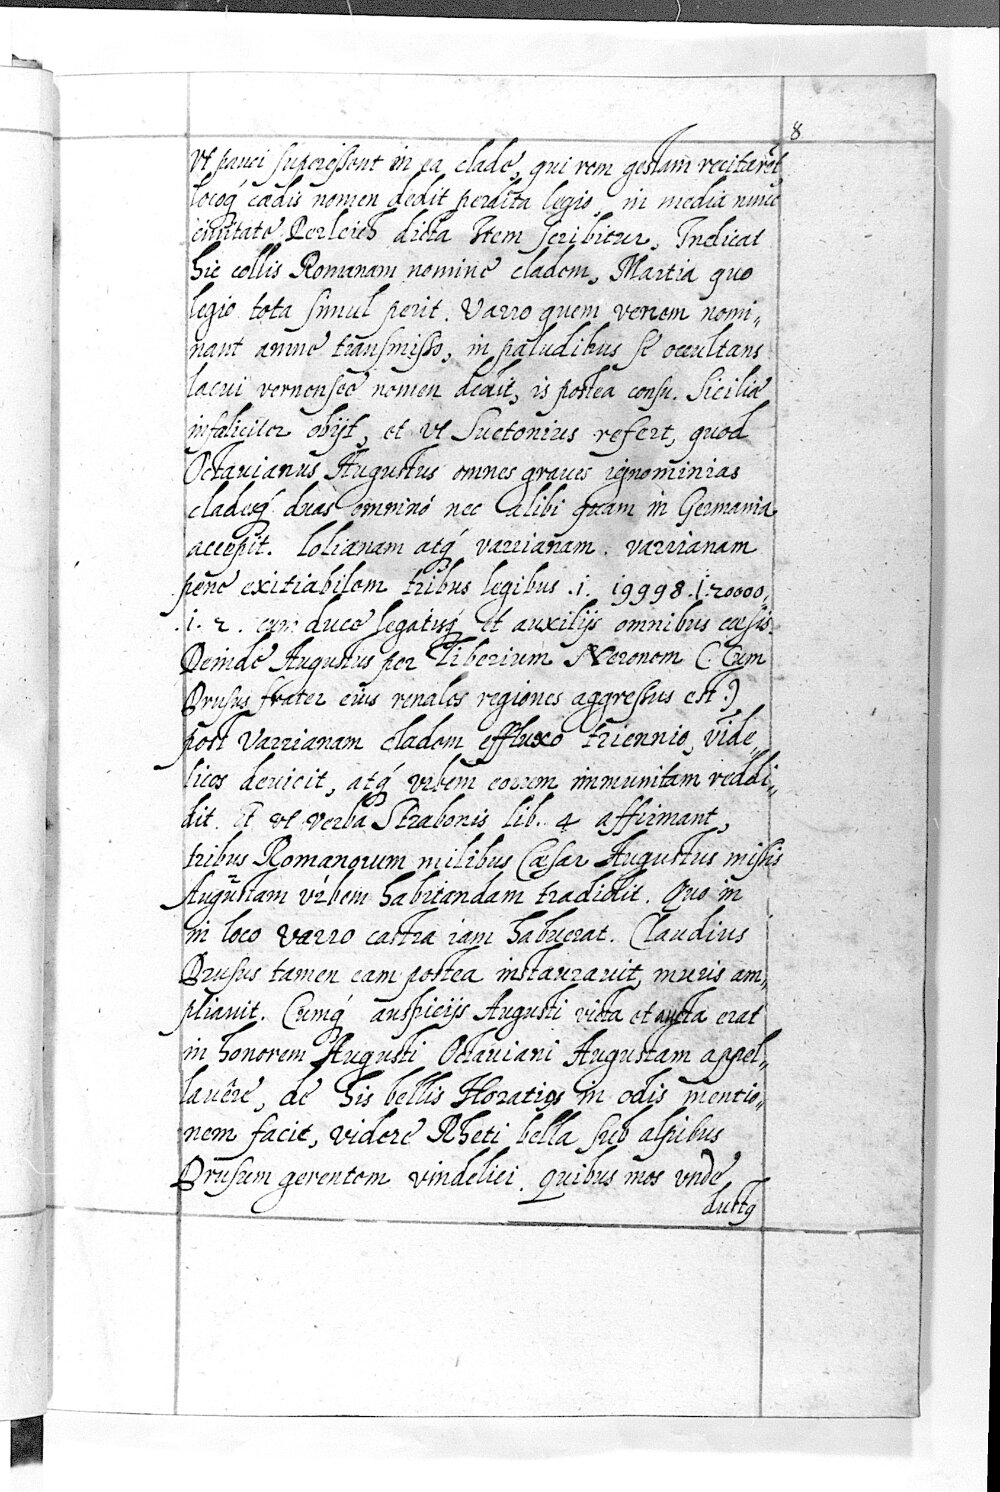 8
vt pauci superessent in ea clade, qui rem gestam recitarēt
locoq́ cædis nomen dedit perdita legio, in media nunc
ciuitate Perleich dicta Item scribitur, Indicat
hic collis Romanam nomine cladem, Martia quo
legio tota simul perit. Varro quem verrem nomi„
nant amne transmisso, in paludibus se occultans
lacui vernensee nomen dedit, is postea consu. Siciliæ
infæliciter obijt, et vt Suetonius refert, quod
Octauianus Augustus omnes graues ignominias
cladesq́ duas omninó nec alibi quam in Germania
accepit. Lolianam atq́ varrianam. varrianam
pene exitiabilem tribus legibus .i. 19998 .1. 20000„
.i. 2. cum duce legatisq́ et auxilijs omnibus cæsis.
Deinde Augustus per Tiberium Neronem (: Cum
Drusus frater eius renales regiones aggressus est :)
post Varrianam cladem effluxo triennio, vide„
licos deuicit, atq́ vrbem eorum immunitam reddi„
dit. Et vt verba Strabonis lib. 4 affirmant,
tribus Romanorum milibus Cæsar Augustus missis
Augustam vrbem habitandam tradidit. Quo in
in loco Varro castra iam habuerat. Claudius
Drusus tamen eam postea instaurauit, muris am„
pliauit. Cumq́ auspicijs Augusti victa et aucta erat
in honorem Augusti Octauiani Augustam appel„
lauêre, de his bellis Horatius in odis mentio„
nem facit, videre Rheti bella sub alpibus
Drusum gerentem vindelici. Quibus mos vnde
ductq